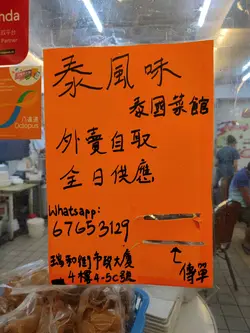 nda
Partner
八達通
Octopus
泰風味
泰國菜館
外賣自取
全日供應
Whatsapp:
67653129
瑞和街市政大廈
4樓4-5C號
傳單